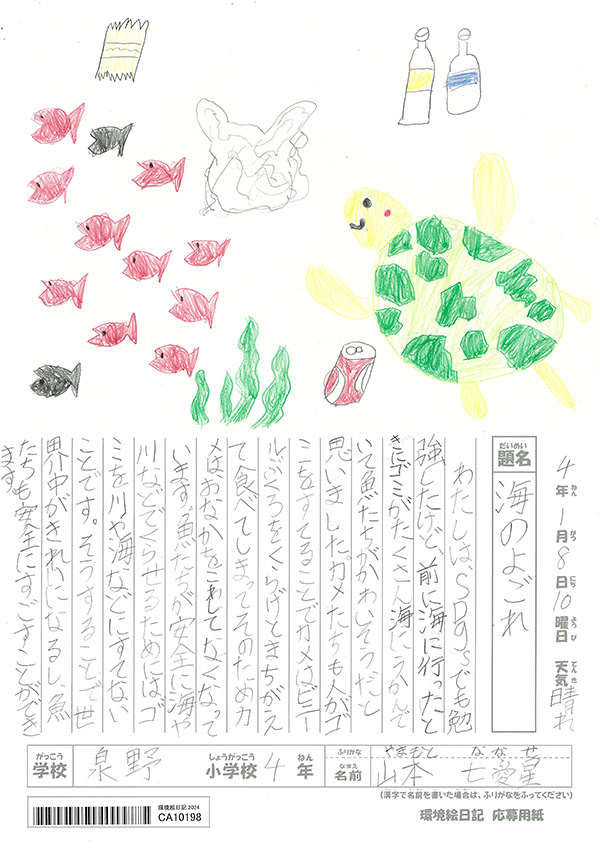 4年1月8日10曜日 天気 晴れ
ねん がつ にち ようび てんき
だいめい
題名
海のよごれ
わたしは、SDGsでも勉
強したけど、前に海に行ったと
きにゴミがたくさん海にうかんで
いて魚たちがかわいそうだと
思いました。カメたちも人がゴ
ミをすてることでカメはビニー
ルぶくろをくらげとまちがえ
て食べてしまってそのためカ
メはおなかをこわしてなくなって
います。魚たちが安全に海や
川などでくらせるためにはゴ
ミを川や海などにすてない
ことです。そうすることで世
界中がきれいになるし、魚
たちも安全にすごすことができ
ます。
がっこう
学校
泉野
しょうがっこう
小学校
4
ねん
年
ふりがな
やまもと ななせ
なまえ
名前
山本 七愛星
(漢字で名前を書いた場合は、ふりがなをふってください)
環境絵日記 2024
CA10198
環境絵日記 応募用紙